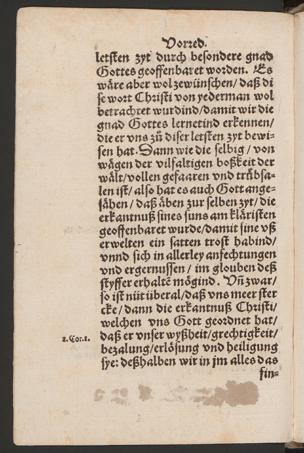 Vorred.
letsten zyt durch besondere gnad
Gottes geoffenbaret worden. Es
wäre aber wol zewünschen/ daß di
se wort Christi von yederman wol
betrachtet wurdind/ damit wir die
gnad Gottes lernetind erkennen/
die er vns zů diser letsten zyt bewi-
sen hat. Dann wie die selbig/ von
wägen der vilfaltigen boßheit der
wält/ vollen gefaaren vnd trůbsa-
len ist/ also hat es auch Gott ange-
sähen/ daß äben zur selben zyt/ die
erkantnuß sines suns am klåristen
geoffenbaret wurde/ damit sine vß
erwelten ein satten trost habind/
vnnd sich in allerley anfechtungen
vnd ergernussen/ im glouben deß
styffer erhaltē mögind. Vn̄ zwar/
so ist nüt überal/ daß vns meer ster
cke/ dann die erkantnuß Christi/
welchen vns Gott geordnet hat/
1.Cor.1.
daß er vnser wyßheit/ grechtigkeit/
bezalung/ erlösung vnd heiligung
sye: deßhalben wir in jm alles das
fin-